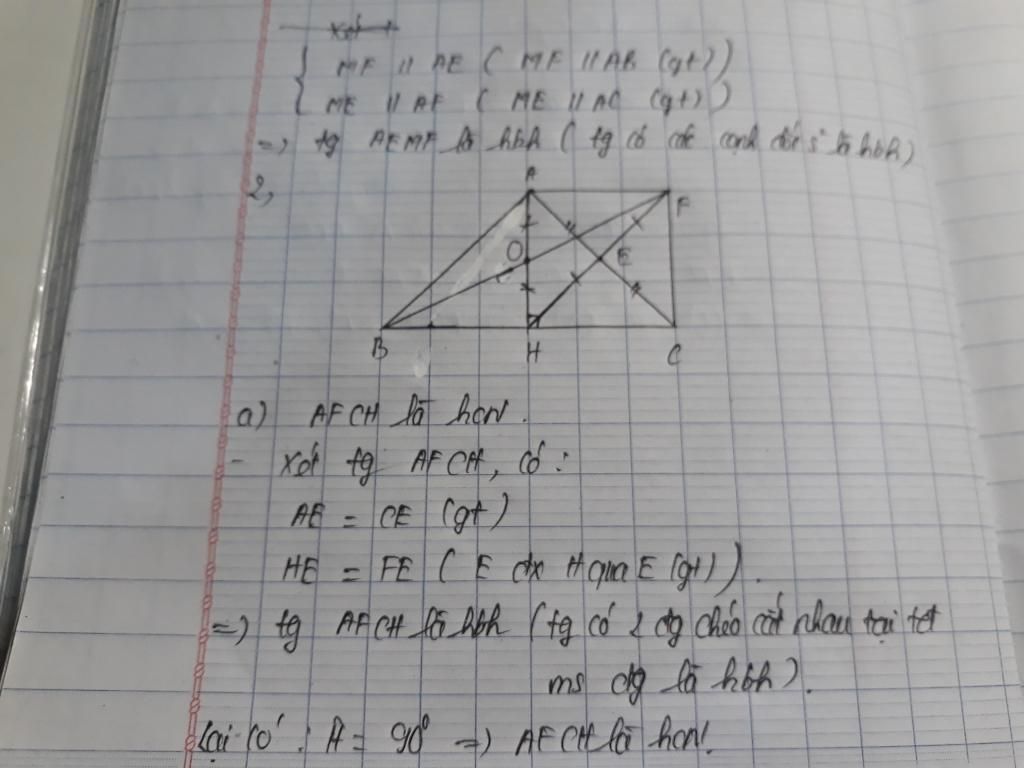 Xét
MF // AE ( MF // AB (gt))
ME // AF ( ME // AC (gt))
=> tg AEMF là hbh ( tg có các cạnh đối s² là hbh)
2,
A
F
O
E
B
H
C
a) AFCH là hcn.
- Xét tg AFCH, có:
AE = CE (gt)
HE = FE ( E đx H qua E (gt)).
=> tg AFCH là hbh (tg có 2 đg chéo cắt nhau tại tđ
mỗi đg là hbh).
Lại có: H = 90° => AFCH là hcn.